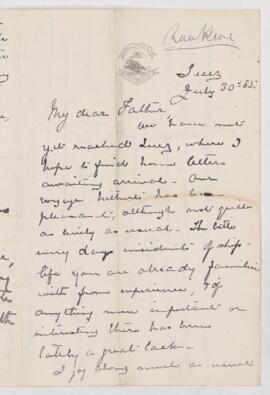 Suez
July 30th 85.
My dear Father,
We have not
yet reached Suez, where I
hope to find some letters
awaiting arrival. Our
voyage hitherto has been
pleasant, although not quite
as lively as usual. The little
every days incidents of ship
life you are already familiar
with from experience, & of
anything more important or
interesting there has been
lately a great lack.
I jog along much as usual
the